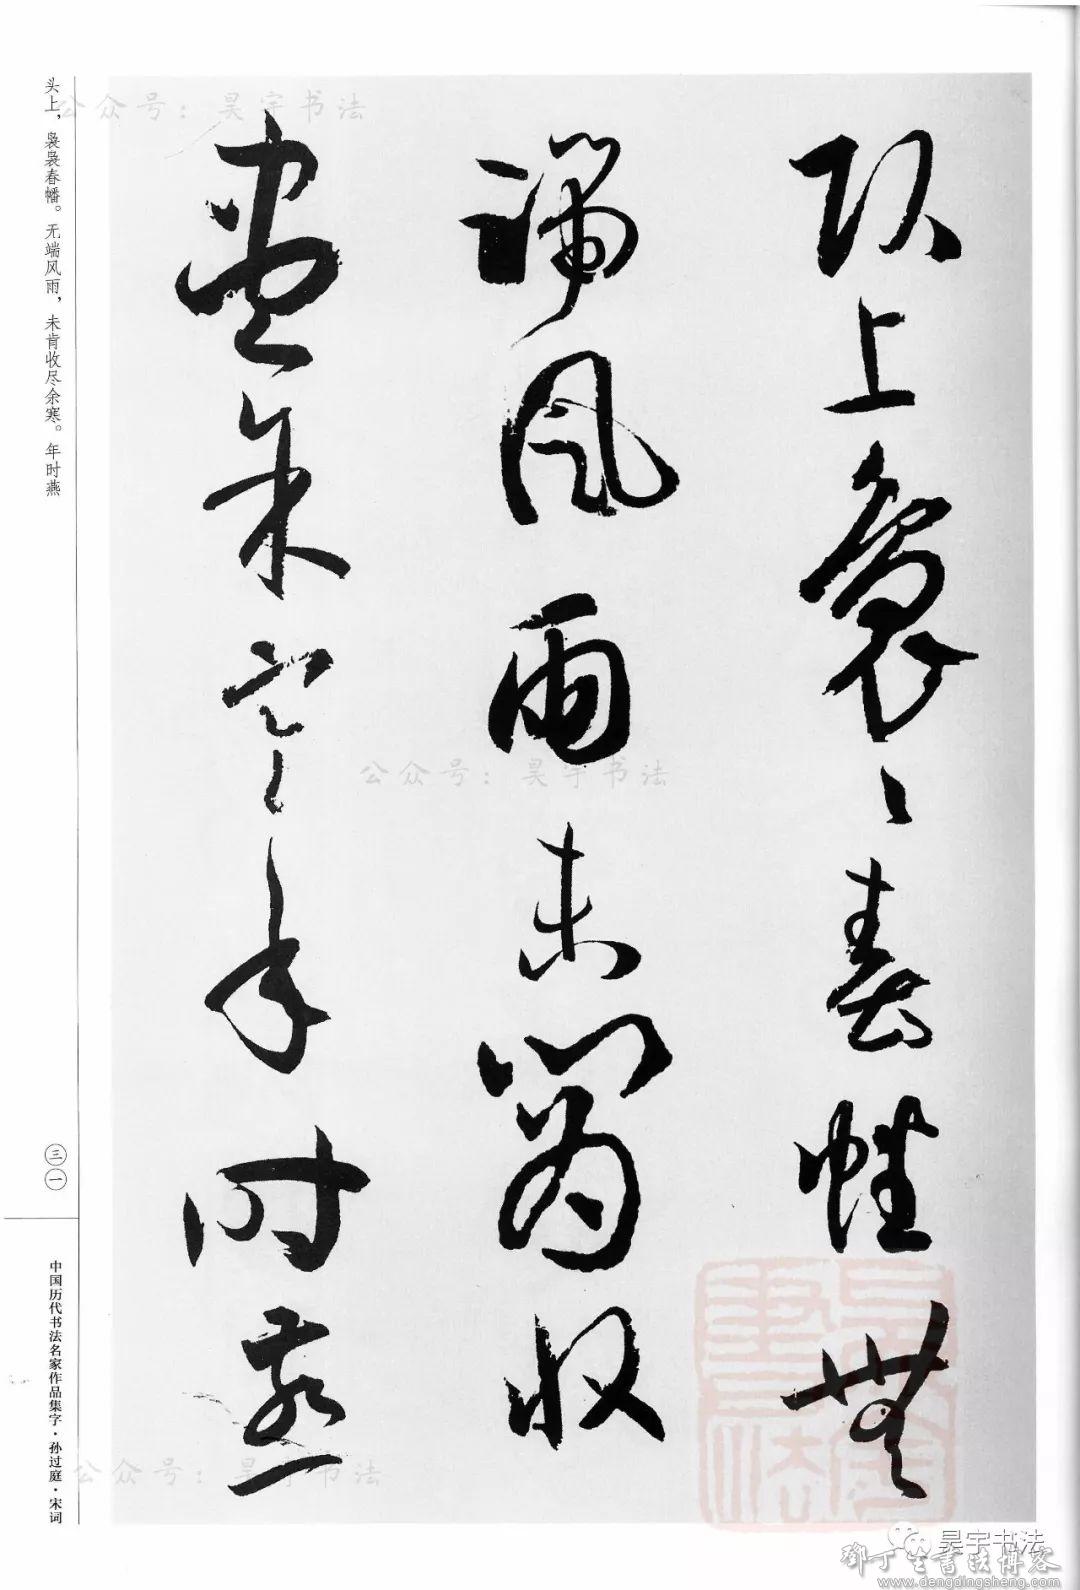 头上，袅袅春幡。无端风雨，未肯收尽余寒。年时燕
頭上裊〻春幡無
端風雨未肯收
盡余寒年時燕
三一
中国历代书法名家作品集字·孙过庭·宋词
公众号：昊宇书法
公众号：昊宇书法
公众号：昊宇书法
昊宇书法
邓丁生书法博客
www.dengdingsheng.com